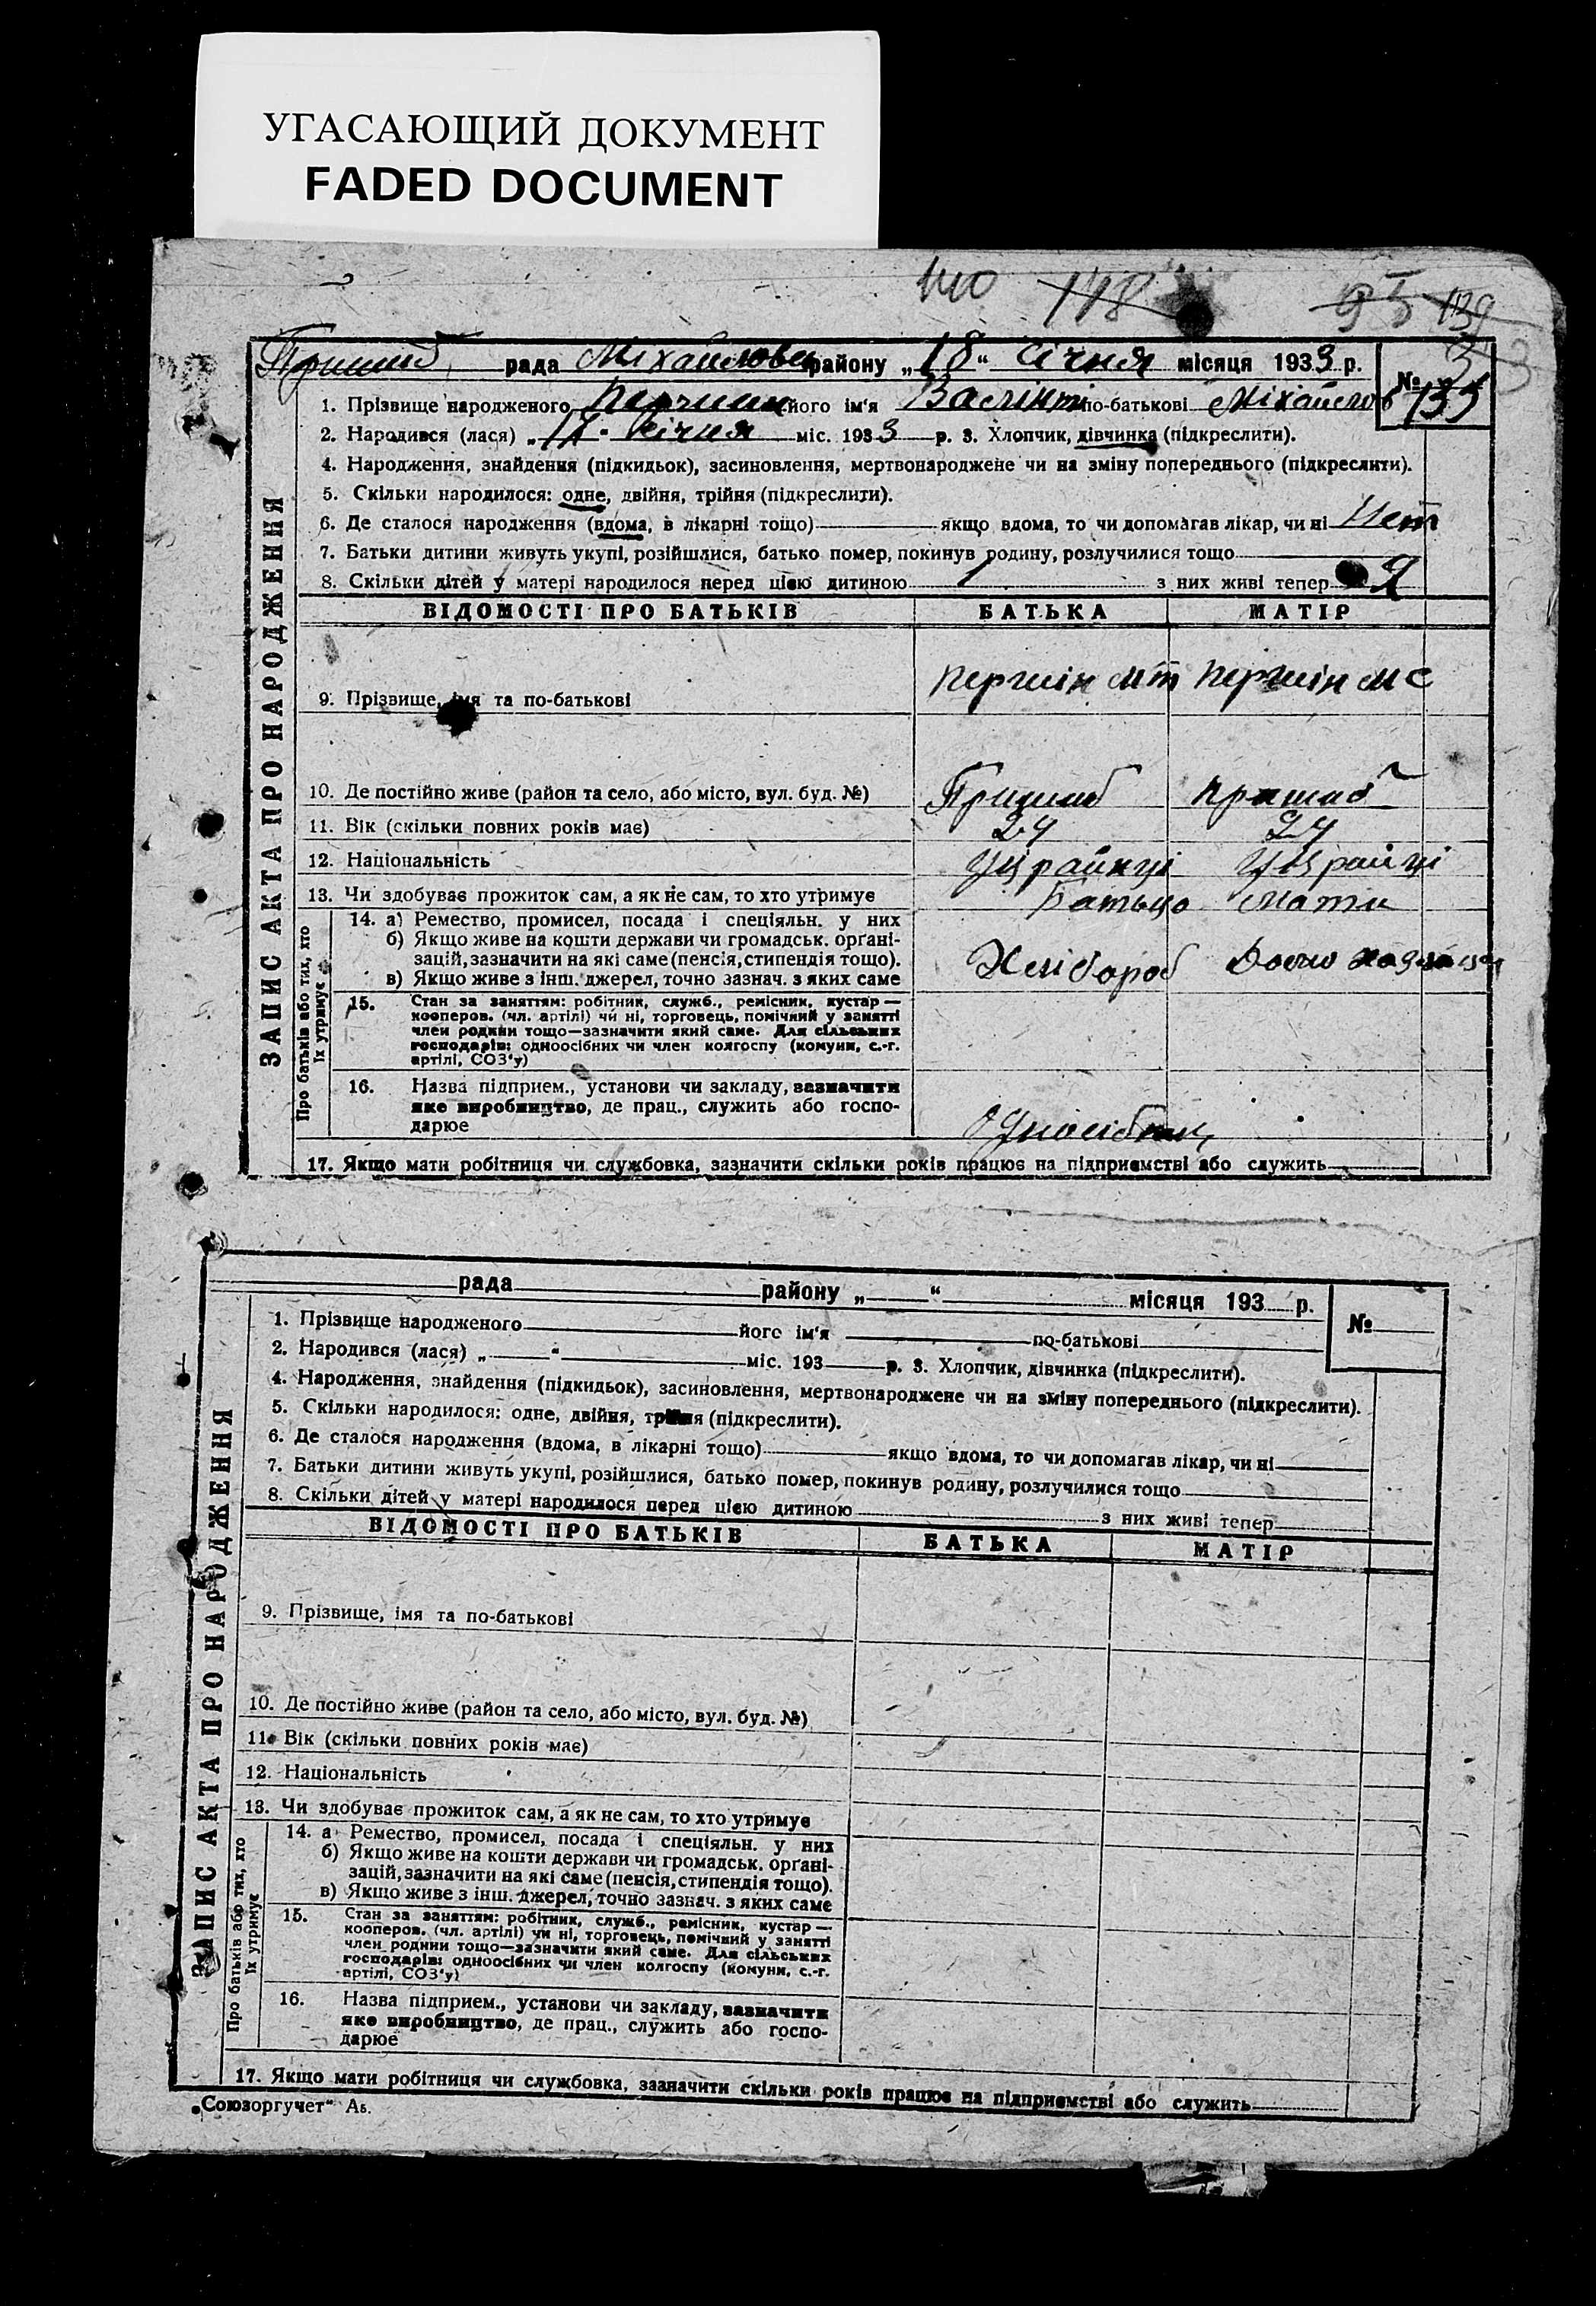 УГАСАЮЩИЙ ДОКУМЕНТ
FADED DOCUMENT
140 148 95 139
Пришиб рада Міхайловськ району „18“ січня місяця 1933 р.
№ 3
135
ЗАПИС АКТА ПРО НАРОДЖЕННЯ
1. Прізвище народженого його ім'я по-батькові Міхайлов
2. Народився (лася) „ січня міс. 1933 р. 3. Хлопчик, дівчинка (підкреслити).
4. Народження, знайдення (підкидьок), засиновлення, мертвонароджене чи на зміну попереднього (підкреслити).
5. Скільки народилося: одне, двійня, трійня (підкреслити).
6. Де сталося народження (вдома, в лікарні тощо) якщо вдома, то чи допомагав лікар, чи ні Нет
7. Батьки дитини живуть укупі, розійшлися, батько помер, покинув родину, розлучилися тощо
8. Скільки дітей у матері народилося перед цією дитиною 1 з них живі тепер
ВІДОМОСТІ ПРО БАТЬКІВ БАТЬКА МАТІР
9. Прізвище, імя та по-батькові Першін М Т Першін М С
10. Де постійно живе (район та село, або місто, вул. буд. №) Пришиб пришиб
11. Вік (скільки повних років має) 24 24
12. Національність Украйнці Украйці
13. Чи здобуває прожиток сам, а як не сам, то хто утримує Батько Мати
Про батьків або тих, хто їх утримує
14. а) Ремество, промисел, посада і спеціяльн. у них
б) Якщо живе на кошти держави чи громадськ. орґані-
зацій, зазначити на які саме (пенсія, стипендія тощо). Хлібороб Домо хазяйка
в) Якщо живе з інш. джерел, точно зазнач. з яких саме
15. Стан за заняттям: робітник, служб., ремісник, кустар —
кооперов. (чл. артілі) чи ні, торговець, помічний у занятті
член родини тощо—зазначити який саме. Для сільських
господарів: одноосібних чи член колгоспу (комуни, с.-г.
артілі, СОЗ'у)
16. Назва підприєм., установи чи закладу, зазначити
яке виробництво, де прац., служить або госпо-
дарює
17. Якщо мати робітниця чи службовка, зазначити скільки років працює на підприємстві або служить
рада району „ “ місяця 193 р.
№
ЗАПИС АКТА ПРО НАРОДЖЕННЯ
1. Прізвище народженого його ім'я по-батькові
2. Народився (лася) „ “ міс. 193 р. 3. Хлопчик, дівчинка (підкреслити).
4. Народження, знайдення (підкидьок), засиновлення, мертвонароджене чи на зміну попереднього (підкреслити).
5. Скільки народилося: одне, двійня, трійня (підкреслити).
6. Де сталося народження (вдома, в лікарні тощо) якщо вдома, то чи допомагав лікар, чи ні
7. Батьки дитини живуть укупі, розійшлися, батько помер, покинув родину, розлучилися тощо
8. Скільки дітей у матері народилося перед цією дитиною з них живі тепер
ВІДОМОСТІ ПРО БАТЬКІВ БАТЬКА МАТІР
9. Прізвище, імя та по-батькові
10. Де постійно живе (район та село, або місто, вул. буд. №)
11. Вік (скільки повних років має)
12. Національність
13. Чи здобуває прожиток сам, а як не сам, то хто утримує
Про батьків або тих, хто їх утримує
14. а Ремество, промисел, посада і спеціяльн. у них
б) Якщо живе на кошти держави чи громадськ. орґані-
зацій, зазначити на які саме (пенсія, стипендія тощо).
в) Якщо живе з інш. джерел, точно зазнач. з яких саме
15. Стан за заняттям: робітник, служб., ремісник, кустар —
кооперов. (чл. артілі) чи ні, торговець, помічний у занятті
член родини тощо—зазначити який саме. Для сільських
господарів: одноосібних чи член колгоспу (комуни, с.-г.
артілі, СОЗ'у)
16. Назва підприєм., установи чи закладу, зазначити
яке виробництво, де прац., служить або госпо-
дарює
17. Якщо мати робітниця чи службовка, зазначити скільки років працює на підприємстві або служить
„Союзоргучет“ А5.